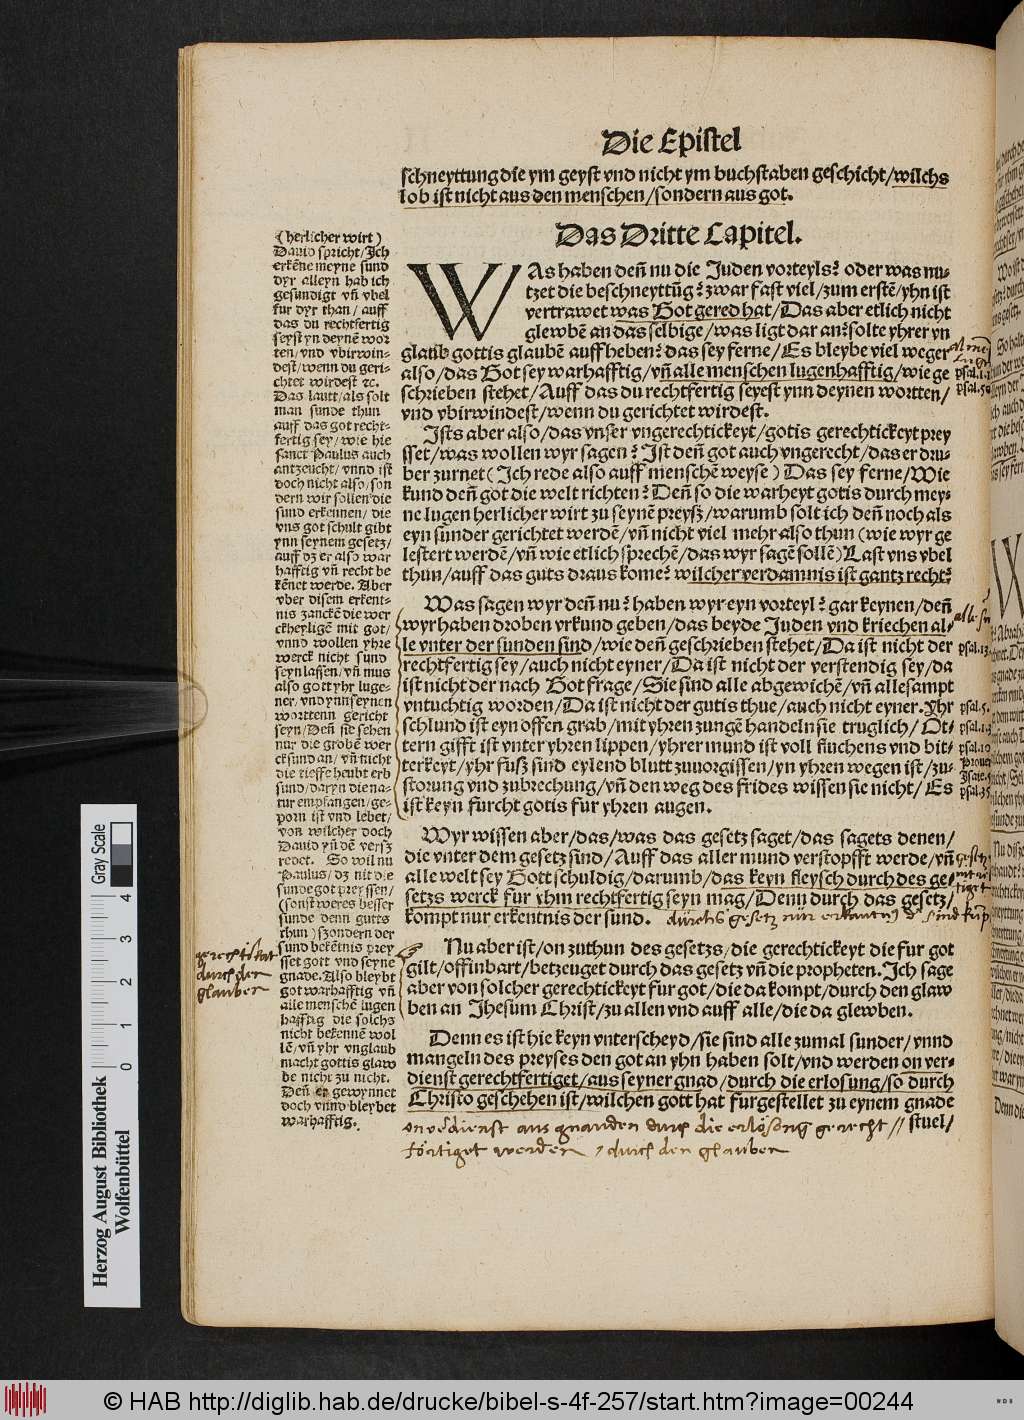 Die Epistel
schneyttung die ym geyst vnd nicht ym buchstaben geschicht/wilchs
lob ist nicht aus den menschen/sondern aus got.
Das Dritte Capitel.
WAs haben deñ nu die Juden vorteyls? oder was nu-
tzet die beschneyttūg? zwar fast viel/zum erstē/yhn ist
vertrawet was Got gered hat/Das aber etlich nicht
glewbē an das selbige/was ligt dar an? solte yhrer vn
glawb gottis glaubē auffheben? das sey ferne/Es bleybe viel weger
also/das Got sey warhafftig/vñ alle menschen lugenhafftig/wie ge
schrieben stehet/Auff das du rechtfertig seyest ynn deynen wortten/
vnd vbirwindest/wenn du gerichtet wirdest.
Ists aber also/das vnser vngerechtickeyt/gotis gerechtickeyt prey
sset/was wollen wyr sagen? Ist deñ got auch vngerecht/das er dru-
ber zurnet (Ich rede also auff menschē weyse) Das sey ferne/Wie
kund deñ got die welt richten? Deñ so die warheyt gotis durch mey-
ne lugen herlicher wirt zu seynē preysz/warumb solt ich deñ noch als
eyn sunder gerichtet werdē/vñ nicht viel mehr also thun (wie wyr ge
lestert werdē/vñ wie etlich sprechē/das wyr sagē sollē) Last vns vbel
thun/auff das guts draus kome? wilcher verdamnis ist gantz recht?
Was sagen wyr deñ nu? haben wyr eyn vorteyl? gar keynen/deñ
wyr haben droben vrkund geben/das beyde Juden vnd kriechen al-
le vnter der sunden sind/wie deñ geschrieben stehet/Da ist nicht der
rechtfertig sey/auch nicht eyner/Da ist nicht der verstendig sey/da
ist nicht der nach Got frage/Sie sind alle abgewichē/vñ allesampt
vntuchtig worden/Da ist nicht der gutis thue/auch nicht eyner. Yhr
schlund ist eyn offen grab/mit yhren zungē handeln sie truglich/Ot-
tern gifft ist vnter yhren lippen/yhrer mund ist voll fluchens vnd bit-
terkeyt/yhr fusz sind eylend blutt zuuorgissen/yn yhren wegen ist/zu-
storung vnd zubrechung/vñ den weg des frides wissen sie nicht/Es
ist keyn furcht gotis fur yhren augen.
Wyr wissen aber/das/was das gesetz saget/das sagets denen/
die vnter dem gesetz sind/Auff das aller mund verstopfft werde/vñ
alle welt sey Gott schuldig/darumb/das keyn fleysch durch des ge-
setzs werck fur yhm rechtfertig seyn mag/Denn durch das gesetz/
kompt nur erkentnis der sund.
Nu aber ist/on zuthun des gesetzs/die gerechtickeyt die fur got
gilt/offinbart/betzeuget durch das gesetz vñ die propheten. Ich sage
aber von solcher gerechtickeyt fur got/die da kompt/durch den glaw
ben an Jhesum Christ/zu allen vnd auff alle/die da glewben.
Denn es ist hie keyn vnterscheyd/sie sind alle zumal sunder/vnnd
mangeln des preyses den got an yhn haben solt/vnd werden on ver-
dienst gerechtfertiget/aus seyner gnad/durch die erlosung/so durch
Christo geschehen ist/wilchen gott hat furgestellet zu eynem gnade
stuel/
on verdienst aus gnanden durch die erlösong gerecht //
fertiget werden / durch den glauben
(herlicher wirt)
Dauid spricht/Ich
erkēne meyne sund
dyr alleyn hab ich
gesundigt vñ vbel
fur dyr than/auff
das du rechtfertig
seyst yn deynē wor
ten/vnd vbirwin-
dest/wenn du geri-
chtet wirdest ⁊c.
Das lautt/als solt
man sunde thun
auff das got recht-
fertig sey/wie hie
sanct Paulus auch
antzeucht/vnnd ist
doch nicht also/son
dern wir sollen die
sund erkennen/die
vns got schult gibt
ynn seynem gesetz/
auff dz er also war
hafftig vñ recht be
kēnet werde. Aber
vber disem erkent-
nis zanckē die wer
ckheyligē mit got/
vnnd wollen yhre
werck nicht sund
seyn lassen/vñ mus
also gott yhr luge-
ner/vnd ynn seynen
worttenn gericht
seyn/Deñ sie sehen
nur die grobē wer
ck sund an/vñ nicht
die tieffe heubt erb
sund/daryn die na-
tur empfangen/ge-
porn ist vnd lebet/
von wilcher doch
Dauid yñ dē versz
redet. So wil nu
Paulus/dz nit die
sunde got preyssen/
(sonst weres besser
sunde denn gutts
thun) szondern der
sund bekētnis prey
sset gott vnd seyne
gnade. Also bleybt
got warhafftig vñ
alle menschē lugen
hafftig die solchs
nicht bekennē wol
lē/vñ yhr vnglaub
macht gottis glaw
be nicht zu nicht.
Deñ er gewynnet
doch vnnd bleybet
warhafftig.
durch der
glauben
psal.5.
psal.10
Gray Scale
0 1 2 3 4
Herzog August Bibliothek
Wolfenbüttel
© HAB http://diglib.hab.de/drucke/bibel-s-4f-257/start.htm?image=00244